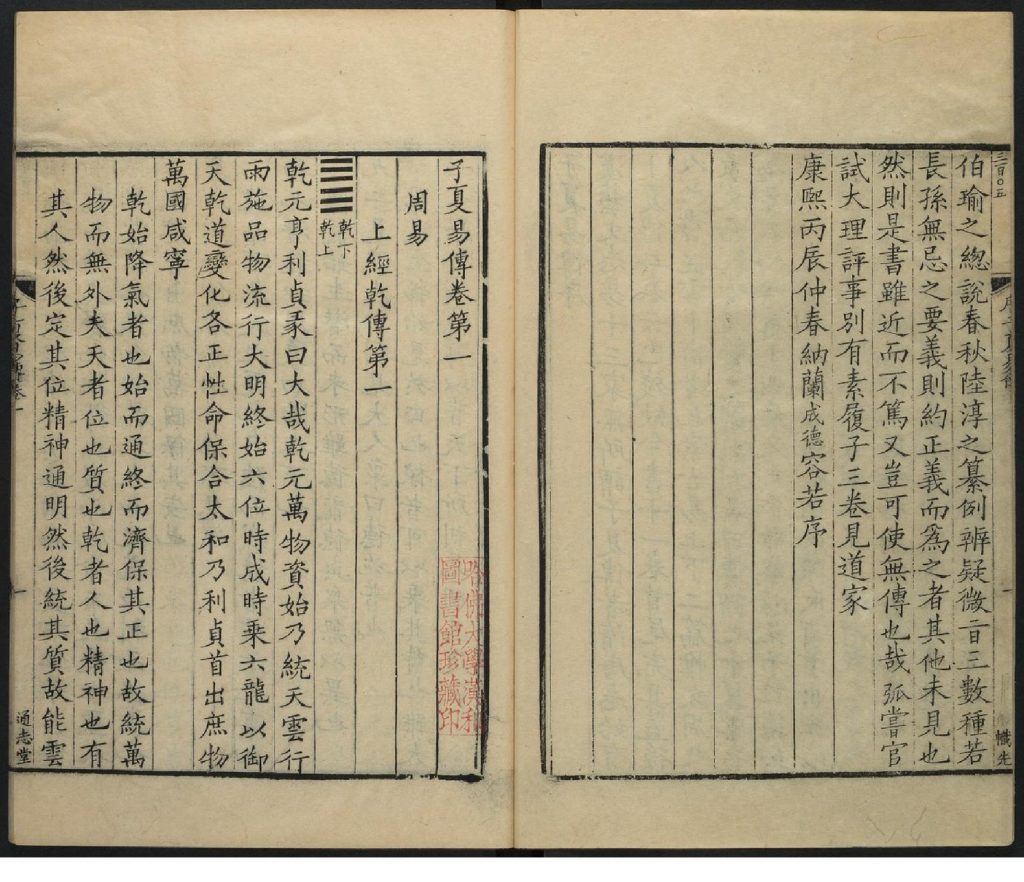 三百〇五
伯瑜之總說春秋陸淳之纂例辨疑微言三數種若
長孫無忌之要義則約正義而爲之者其他未見也
然則是書雖近而不篤又豈可使無傳也哉弧嘗官
試大理評事別有素履子三卷見道家
康熙丙辰仲春納蘭成德容若序
子夏易傳卷第一
周易
上經乾傳第一
乾下
乾上
乾元亨利貞彖曰大哉乾元萬物資始乃統天雲行
雨施品物流行大明終始六位時成時乘六龍以御
天乾道變化各正性命保合太和乃利貞首出庶物
萬國咸寧
乾始降氣者也始而通終而濟保其正也故統萬
物而無外夫天者位也質也乾者人也精神也有
其人然後定其位精神通明然後統其質故能雲
通志堂
哈佛大學漢和
圖書館珍藏印